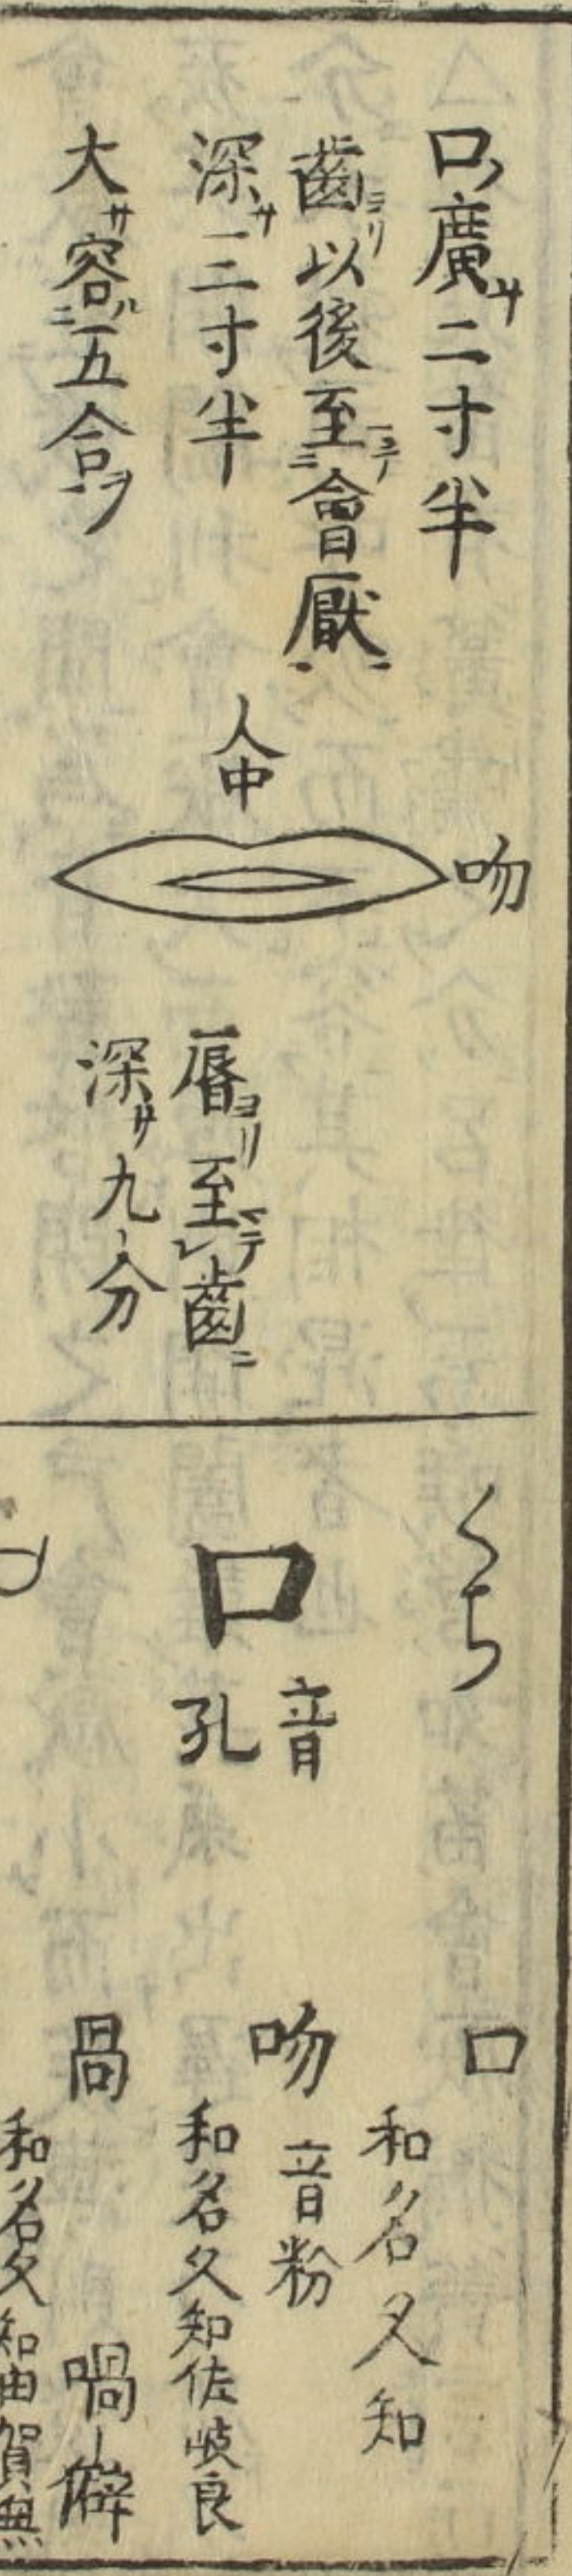 口ノ廣サ二寸半
齒ヨリ以後至テ二會厭ニ一
深サ三寸半
大サ容ルニ五合ヲ一
人中
吻
唇ヨリ至テレ齒ニ
深サ九分
くち
口
音
孔
口
和名久知
吻
音粉
和名久知佐岐良
咼
喎僻
和名久知由賀無